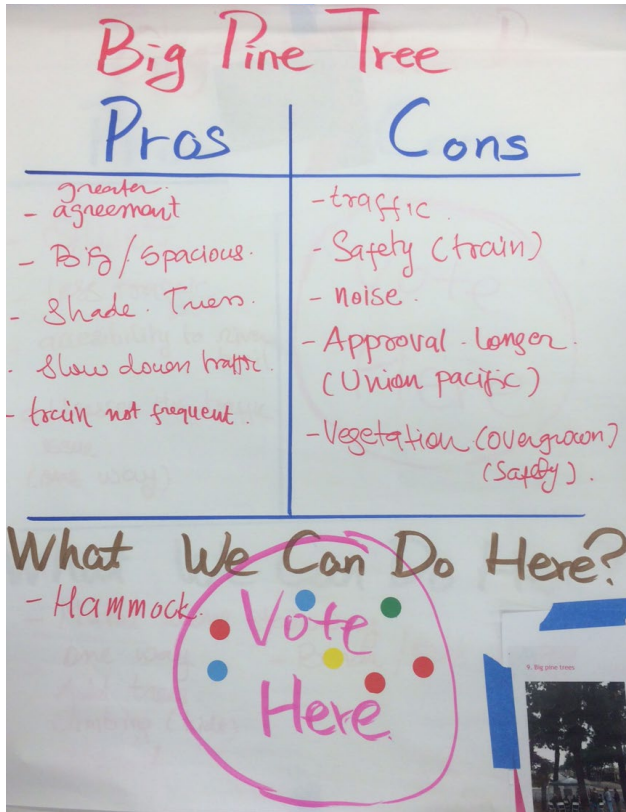 Big Pine Tree
Pros
greater
- agreement
- Big/Spacious.
- Shade. Trees.
- Slow down traffic.
- train not frequent.
Cons
- traffic.
- Safety (train)
- noise.
- Approval. Longer.
(Union pacific)
- Vegetation (overgrown)
(Safety).
What We Can Do Here?
- Hammock.
Vote
Here
9. Big pine trees